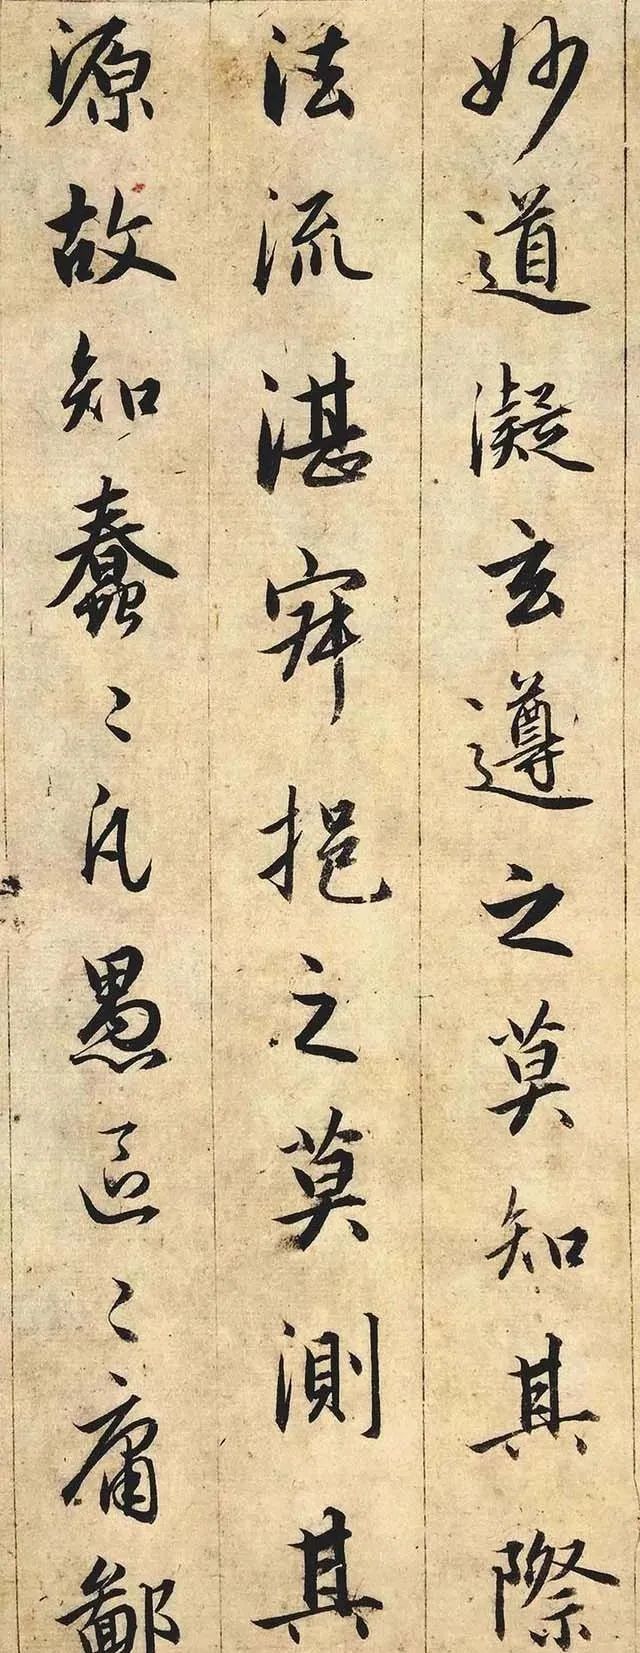 妙道凝玄遵之莫知其際
法流湛寂挹之莫測其
源故知蠢〻凡愚區〻庸鄙